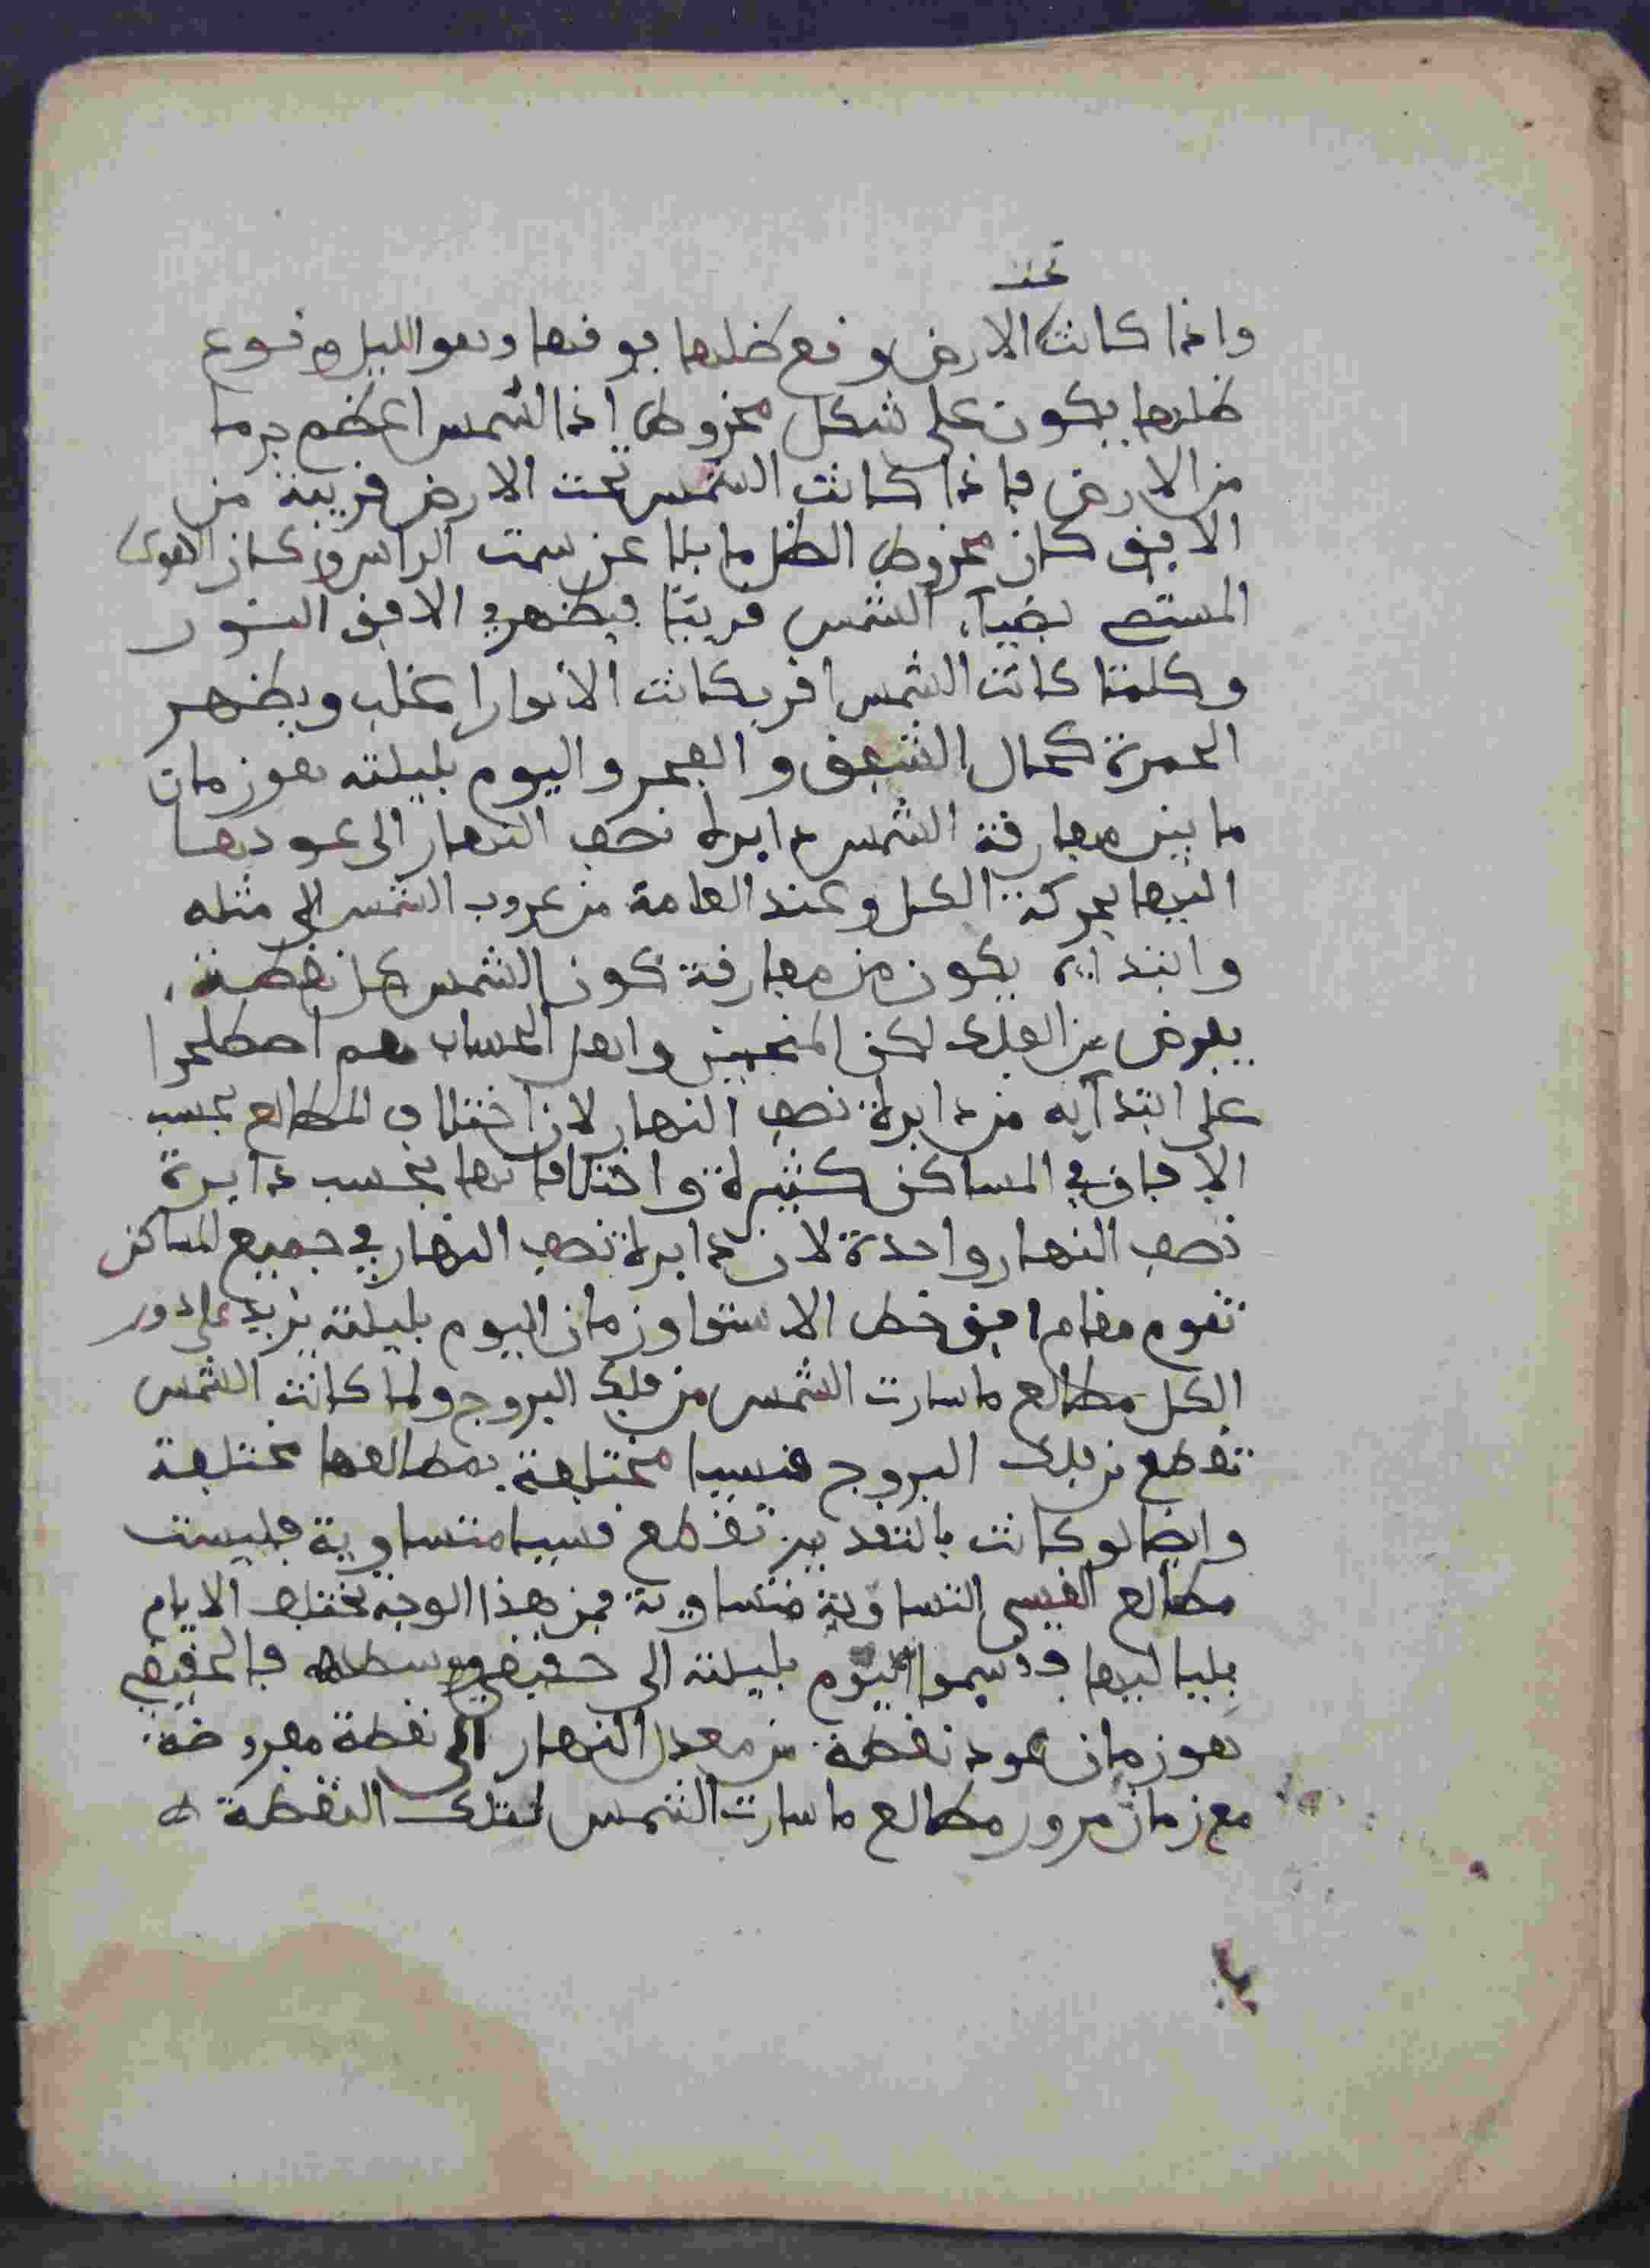 تحت
واذا كانت الارض وقع ظلها فوقها وهو الليل ووقوع
ظلها يكون على شكل مخروطي اذا الشمس اعظم جرما
من الارض فاذا كانت الشمس تحت الارض قريبة من
الافق كان مخروط الظل مايلا عن سمت الراس وكان الهوى
المستضي بضياء الشمس قريبا فيظهر في الافق النور
وكلما كانت الشمس اقرب كانت الانوار اغلب ويظهر
الحمرة كحال الشفق والفجر واليوم بليلته هو زمان
ما بين مفارقة الشمس دايرة نصف النهار الى عودها
اليها بحركة الكل وعند العامة من غروب الشمس الى مثله
وابتدايه يكون من مفارقة كون الشمس كل نقطة
يفرض من الفلك لكن المنجمين واهل الحساب فهم اصطلحوا
على ابتدآيه من دايرة نصف النهار لان اختلاف المطالع بحسب
الافاق في المساكن كثيرة واختلافاتها بحسب دايرة
نصف النهار واحدة لان دايرة نصف النهار في جميع المساكن
تقوم مقام افق خط الاستوا وزمان اليوم بليلته يزيد على دور
الكل مطالع ما سارت الشمس من فلك البروج ولما كانت الشمس
تقطع من فلك البروج قسيا مختلفة بمطالعها مختلفة
وايضا لو كانت بالتقدير تقطع قسيا متساوية فليست
مطالع القسي التساوية متساوية فمن هذا الوجه تختلف الايام
بلياليها فقسموا اليوم بليلته الى حقيقي ووسطه فالحقيقي
هو زمان عود نقطة من معدل النهار الى نقطة مفروضة
مع زمان مرور مطالع ما سارت الشمس لتلك النقطة ه